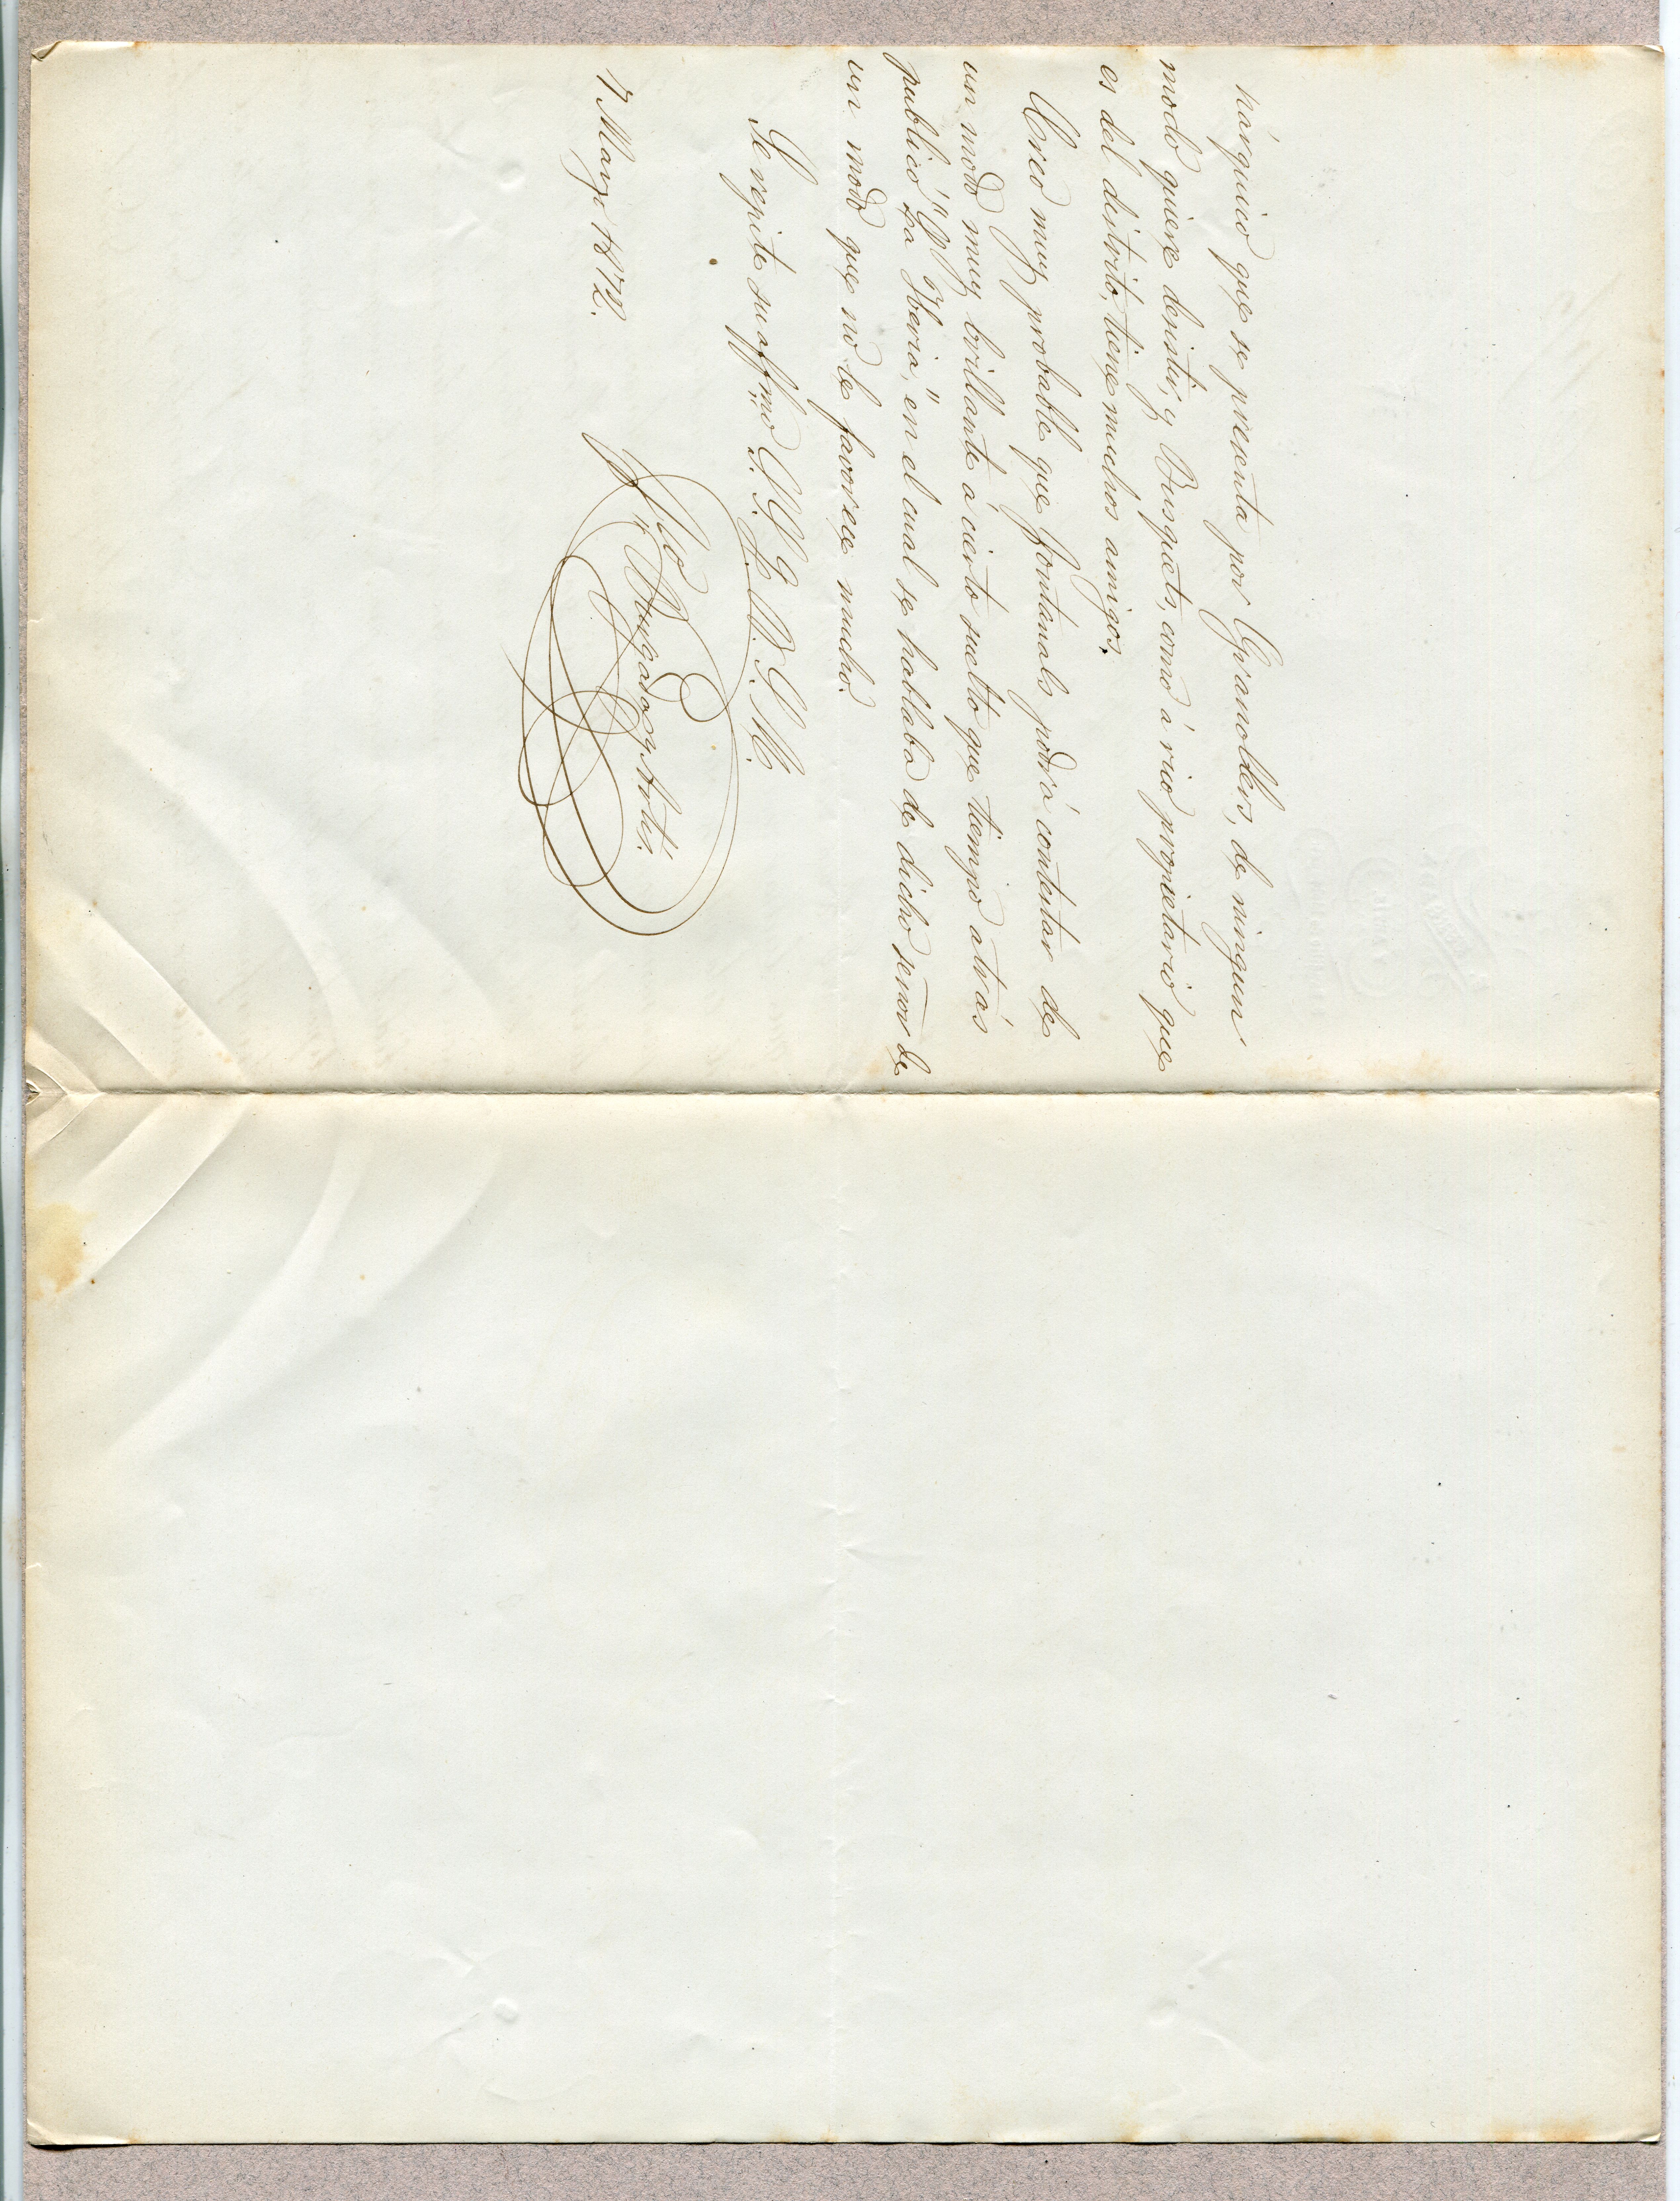 nárquico que se presenta por Granollers, de ningun
modo quiere desistir, y Busquets, como á rico propietario que
es del distrito, tiene muchos amigos.
Creo muy probable que Fontanals podrá contestar de
un modo muy brillante á cierto suelto que tiempo atrás
publicó "La Iberia," en el cual se hablaba de dicho señor de
un modo que no le favorece mucho.
Se repite su affmo S. S. Q. B. S. M.
Fco Brugada y Artis.
7 Marzo 1872.